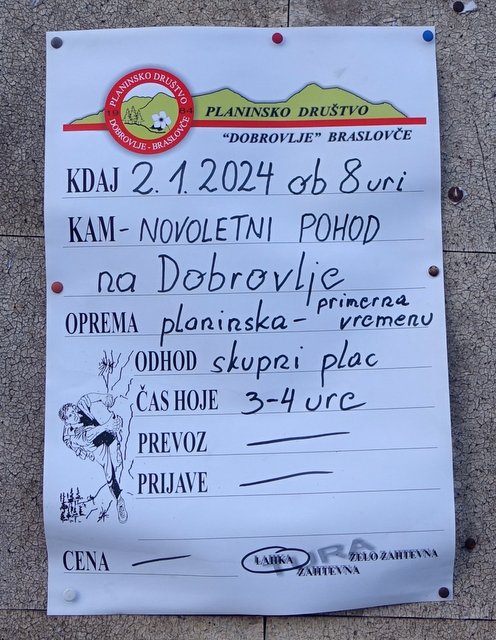 PLANINSKO DRUŠTVO
19 84
DOBROVLJE - BRASLOVČE
PLANINSKO DRUŠTVO
"DOBROVLJE" BRASLOVČE
KDAJ 2.1.2024 ob 8 uri
KAM - NOVOLETNI POHOD
na Dobrovlje
OPREMA planinska - primerna
vremenu
ODHOD skupni plac
ČAS HOJE 3-4 ure
PREVOZ —
PRIJAVE —
CENA — LAHKA TURA ZELO ZAHTEVNA
ZAHTEVNA